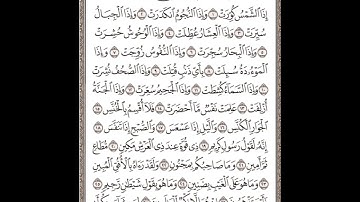 إِذَا ٱلشَّمْسُ كُوِّرَتْ ١ وَإِذَا ٱلنُّجُومُ ٱنكَدَرَتْ ٢ وَإِذَا ٱلْجِبَالُ
سُيِّرَتْ ٣ وَإِذَا ٱلْعِشَارُ عُطِّلَتْ ٤ وَإِذَا ٱلْوُحُوشُ حُشِرَتْ
٥ وَإِذَا ٱلْبِحَارُ سُجِّرَتْ ٦ وَإِذَا ٱلنُّفُوسُ زُوِّجَتْ ٧ وَإِذَا
ٱلْمَوْءُۥدَةُ سُئِلَتْ ٨ بِأَىِّ ذَنۢبٍ قُتِلَتْ ٩ وَإِذَا ٱلصُّحُفُ نُشِرَتْ
١٠ وَإِذَا ٱلسَّمَآءُ كُشِطَتْ ١١ وَإِذَا ٱلْجَحِيمُ سُعِّرَتْ ١٢ وَإِذَا ٱلْجَنَّةُ
أُزْلِفَتْ ١٣ عَلِمَتْ نَفْسٌ مَّآ أَحْضَرَتْ ١٤ فَلَآ أُقْسِمُ بِٱلْخُنَّسِ ١٥
ٱلْجَوَارِ ٱلْكُنَّسِ ١٦ وَٱلَّيْلِ إِذَا عَسْعَسَ ١٧ وَٱلصُّبْحِ إِذَا تَنَفَّسَ ١٨
إِنَّهُۥ لَقَوْلُ رَسُولٍ كَرِيمٍ ١٩ ذِى قُوَّةٍ عِندَ ذِى ٱلْعَرْشِ مَكِينٍ ٢٠ مُّطَاعٍ
ثَمَّ أَمِينٍ ٢١ وَمَا صَاحِبُكُم بِمَجْنُونٍ ٢٢ وَلَقَدْ رَءَاهُ بِٱلْأُفُقِ ٱلْمُبِينِ
٢٣ وَمَا هُوَ عَلَى ٱلْغَيْبِ بِضَنِينٍ ٢٤ وَمَا هُوَ بِقَوْلِ شَيْطَٰنٍ رَّجِيمٍ
٢٥